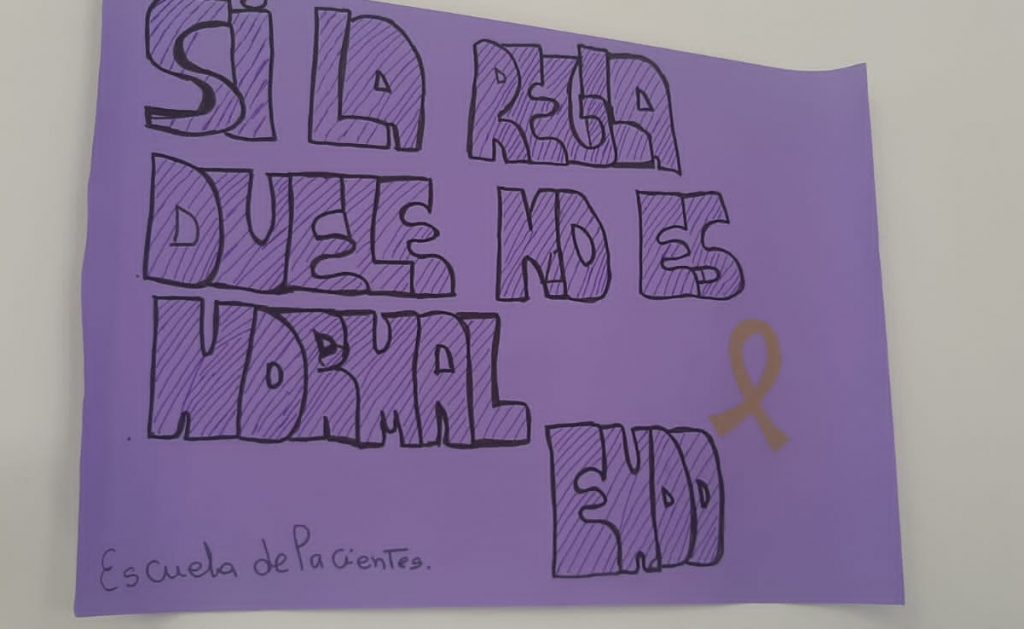 SI LA REGLA
DUELE NO ES
NORMAL
ENDO
Escuela de Pacientes.